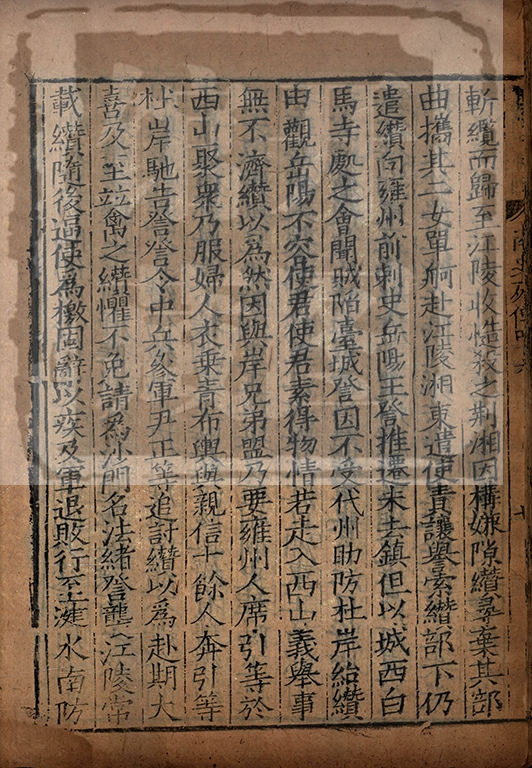 斬纜而歸至江陵收慥殺之荆湘因構嫌隙纘尋棄其部
曲攜其二女單舸赴江陵湘東遣使責讓譽索纘部下仍
遣纘向雍州前刺史岳陽王詧推遷未去鎮但以城西白
馬寺處之會聞賊陷臺城詧因不受代州助防杜岸紿纘
曰觀岳陽不容使君使君素得物情若走入西山義舉事
無不濟纘以爲然因與岸兄弟盟乃要雍州人席引等於
西山聚衆乃服婦人衣乘青布輿與親信十餘人奔引等
杜岸馳告詧詧令中兵參軍尹正等追討纘以爲赴期大
喜及至並禽之纘懼不免請爲沙門名法緒詧襲江陵常
載纘隨後逼使爲檄固辭以疾及軍退敗行至湕水南防